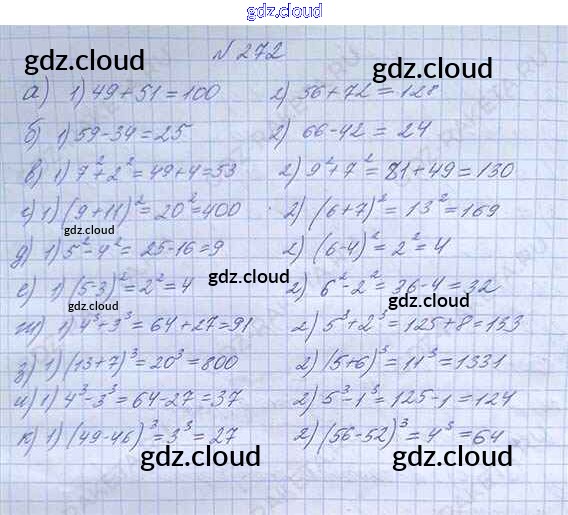 gdz.cloud
№ 272
gdz.cloud gdz.cloud
а) 1) 49+51=100 2) 56+72=128
б) 1) 59-34=25 2) 66-42=24
в) 1) 7²+2²=49+4=53 2) 9²+7²=81+49=130
г) 1) (9+11)²=20²=400 2) (6+7)²=13²=169
gdz.cloud gdz.cloud
д) 1) 5²-4²=25-16=9 2) (6-4)²=2²=4
е) 1) (5-3)²=2²=4 2) 6²-2²=36-4=32
gdz.cloud gdz.cloud
ж) 1) 4³+3³=64+27=91 2) 5³+2³=125+8=133
з) 1) (13+7)³=20³=800 2) (5+6)³=11³=1331
и) 1) 4³-3³=64-27=37 2) 5³-1³=125-1=124
к) 1) (49-46)³=3³=27 2) (56-52)³=4³=64
gdz.cloud gdz.cloud